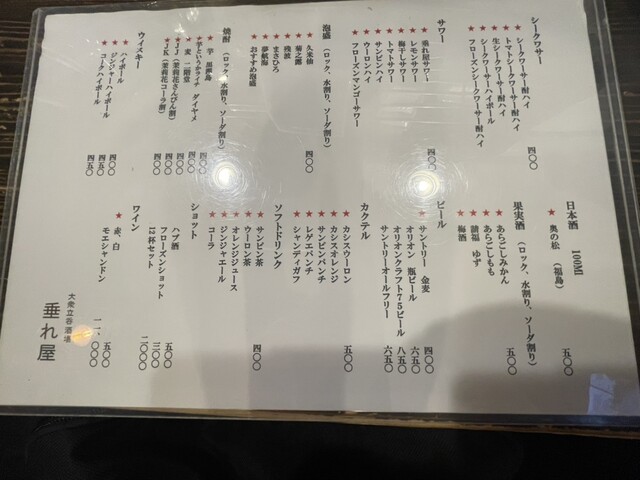 シークワサー
★シークワーサー酎ハイ
★トマトシークワーサー酎ハイ
★生シークワーサー酎ハイ
シークワーサーハイボール
フローズンシークワーサー酎ハイ
四〇〇
サワー
★垂れ屋サワー
★レモンサワー
★梅干しサワー
★トマトサワー
★サンピンハイ
★ウーロンハイ
フローズンマンゴーサワー
四〇〇
泡盛(ロック、水割り、ソーダ割り)
★久米仙
★菊之露
★残波
★まさひろ
★夢航海
★おすすめ泡盛
四〇〇
焼酎(ロック、水割り、ソーダ割り)
★芋 黒霧島
★芋といったらライチ ダイヤメ
★麦 二階堂
★JJ(茉莉花さんぴん割)
★JK(茉莉花コーラ割)
四〇〇
四〇〇
四〇〇
四〇〇
ウイスキー
★ハイボール
★ジンジャーハイボール
★コークハイボール
四〇〇
四五〇
四五〇
日本酒 100Ml
★奥の松(福島)
五〇〇
果実酒(ロック、水割り、ソーダ割り)
★あらごしみかん
★あらごしもも
★請福 ゆず
★梅酒
五〇〇
ビール
★サントリー 金麦
オリオン 瓶ビール
オリオンクラフト75ビール
サントリーオールフリー
四〇〇
六五〇
八五〇
六五〇
カクテル
★カシスウーロン
★カシスオレンジ
★サンピンパンチ
★レゲエパンチ
★シャンディガフ
五〇〇
ソフトドリンク
★サンピン茶
★ウーロン茶
★オレンジジュース
★ジンジャエール
★コーラ
四〇〇
ショット
ハブ酒
フローズンショット
12杯セット
五〇〇
三〇〇
二〇〇〇
ワイン
★赤、白
モエシャンドン
五〇〇
一一、〇〇〇
大衆立呑酒場
垂れ屋